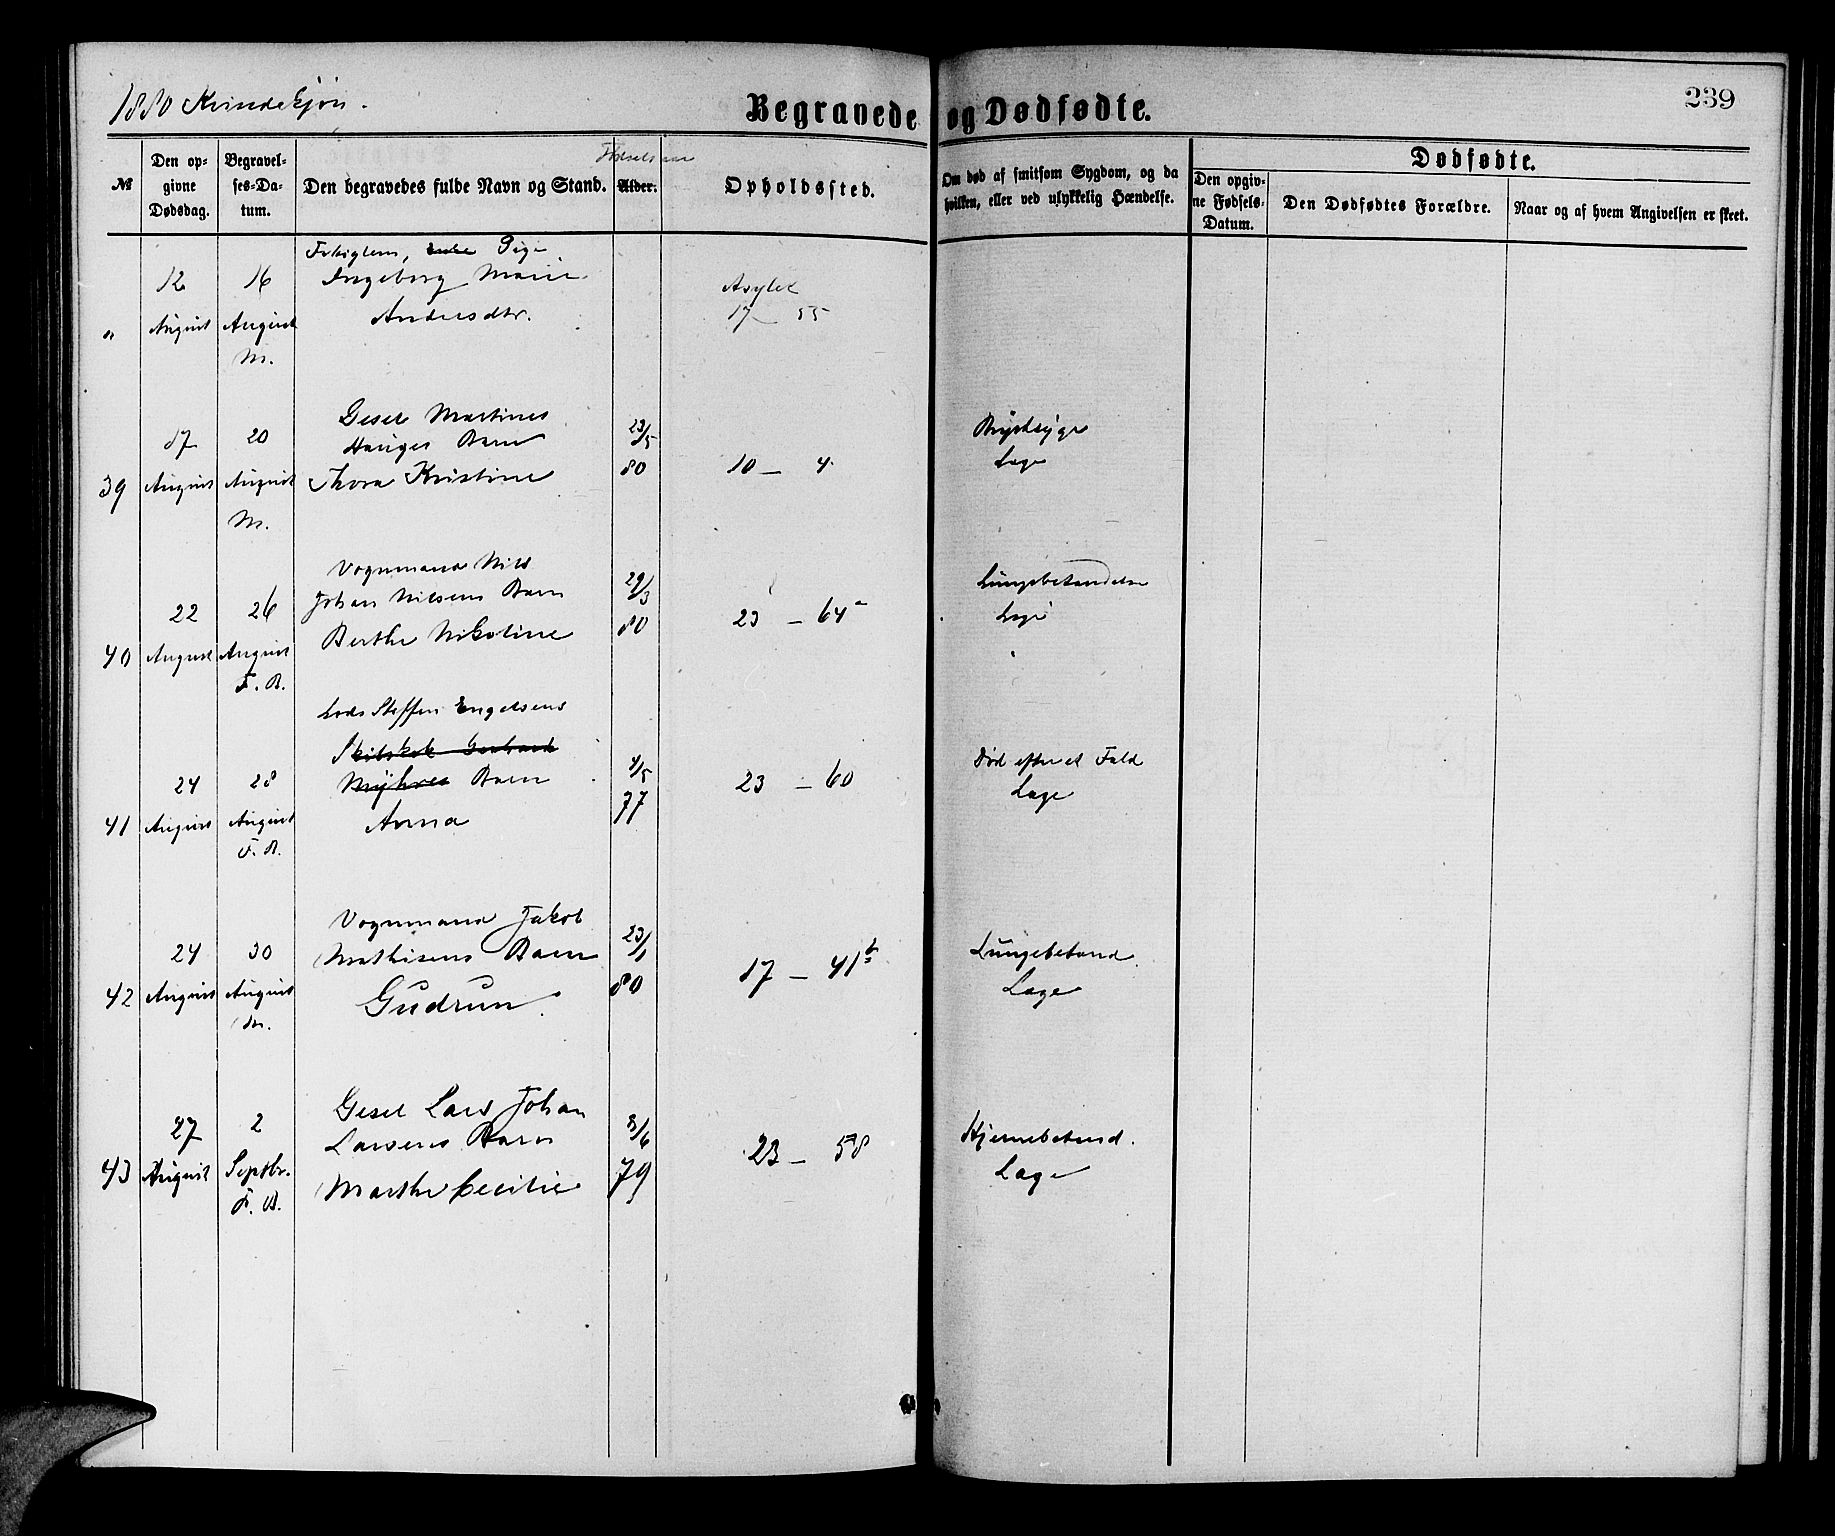 1880 Kvindekjøn.
Begravede og Dødfødte.
239
№
Den op-
givne
Dødsdag.
Begravel-
ses-Da-
tum.
Den begravedes fulde Navn og Stand.
Fødselsaar
Alder.
Opholdssted.
Om død af smitsom Sygdom, og da
hvilken, eller ved ulykkelig Hændelse.
Dødfødte.
Den opgiv-
ne Fødsels-
Datum.
Den Dødfødtes Forældre.
Naar og af hvem Angivelsen er skeet.
Pige
12 16 Ingeborg Marie
Asylet
" August August Andersdtr. 17 — 55
M.
Gesel Martines
17 20 Hauges Barn 23/5 Brystsyge
39 August August Thora Kristine 80 10 — 4 Læge
M.
Vognmand Nils
22 26 Johan Nilsens Barn 29/3 23 — 64 Lungebetændelse
40 August August Berthe Nikoline 80 Læge
F. B.
Lods Steffen Engelsens
24 28 Barn 4/5 23 — 60 Død efter et Fald
41 August August Anna 77 Læge
F. B.
Vognmand Jakob
24 30 Mathisens Barn 23/1 17 — 41b Lungebetænd.
42 August August Gudrun 80 Læge
M.
Gesel Lars Johan
27 2 Larsens Barn 3/6 23 — 58 Hjernebetænd.
43 August Septbr. Marthe Cecilie 79 Læge
F. B.